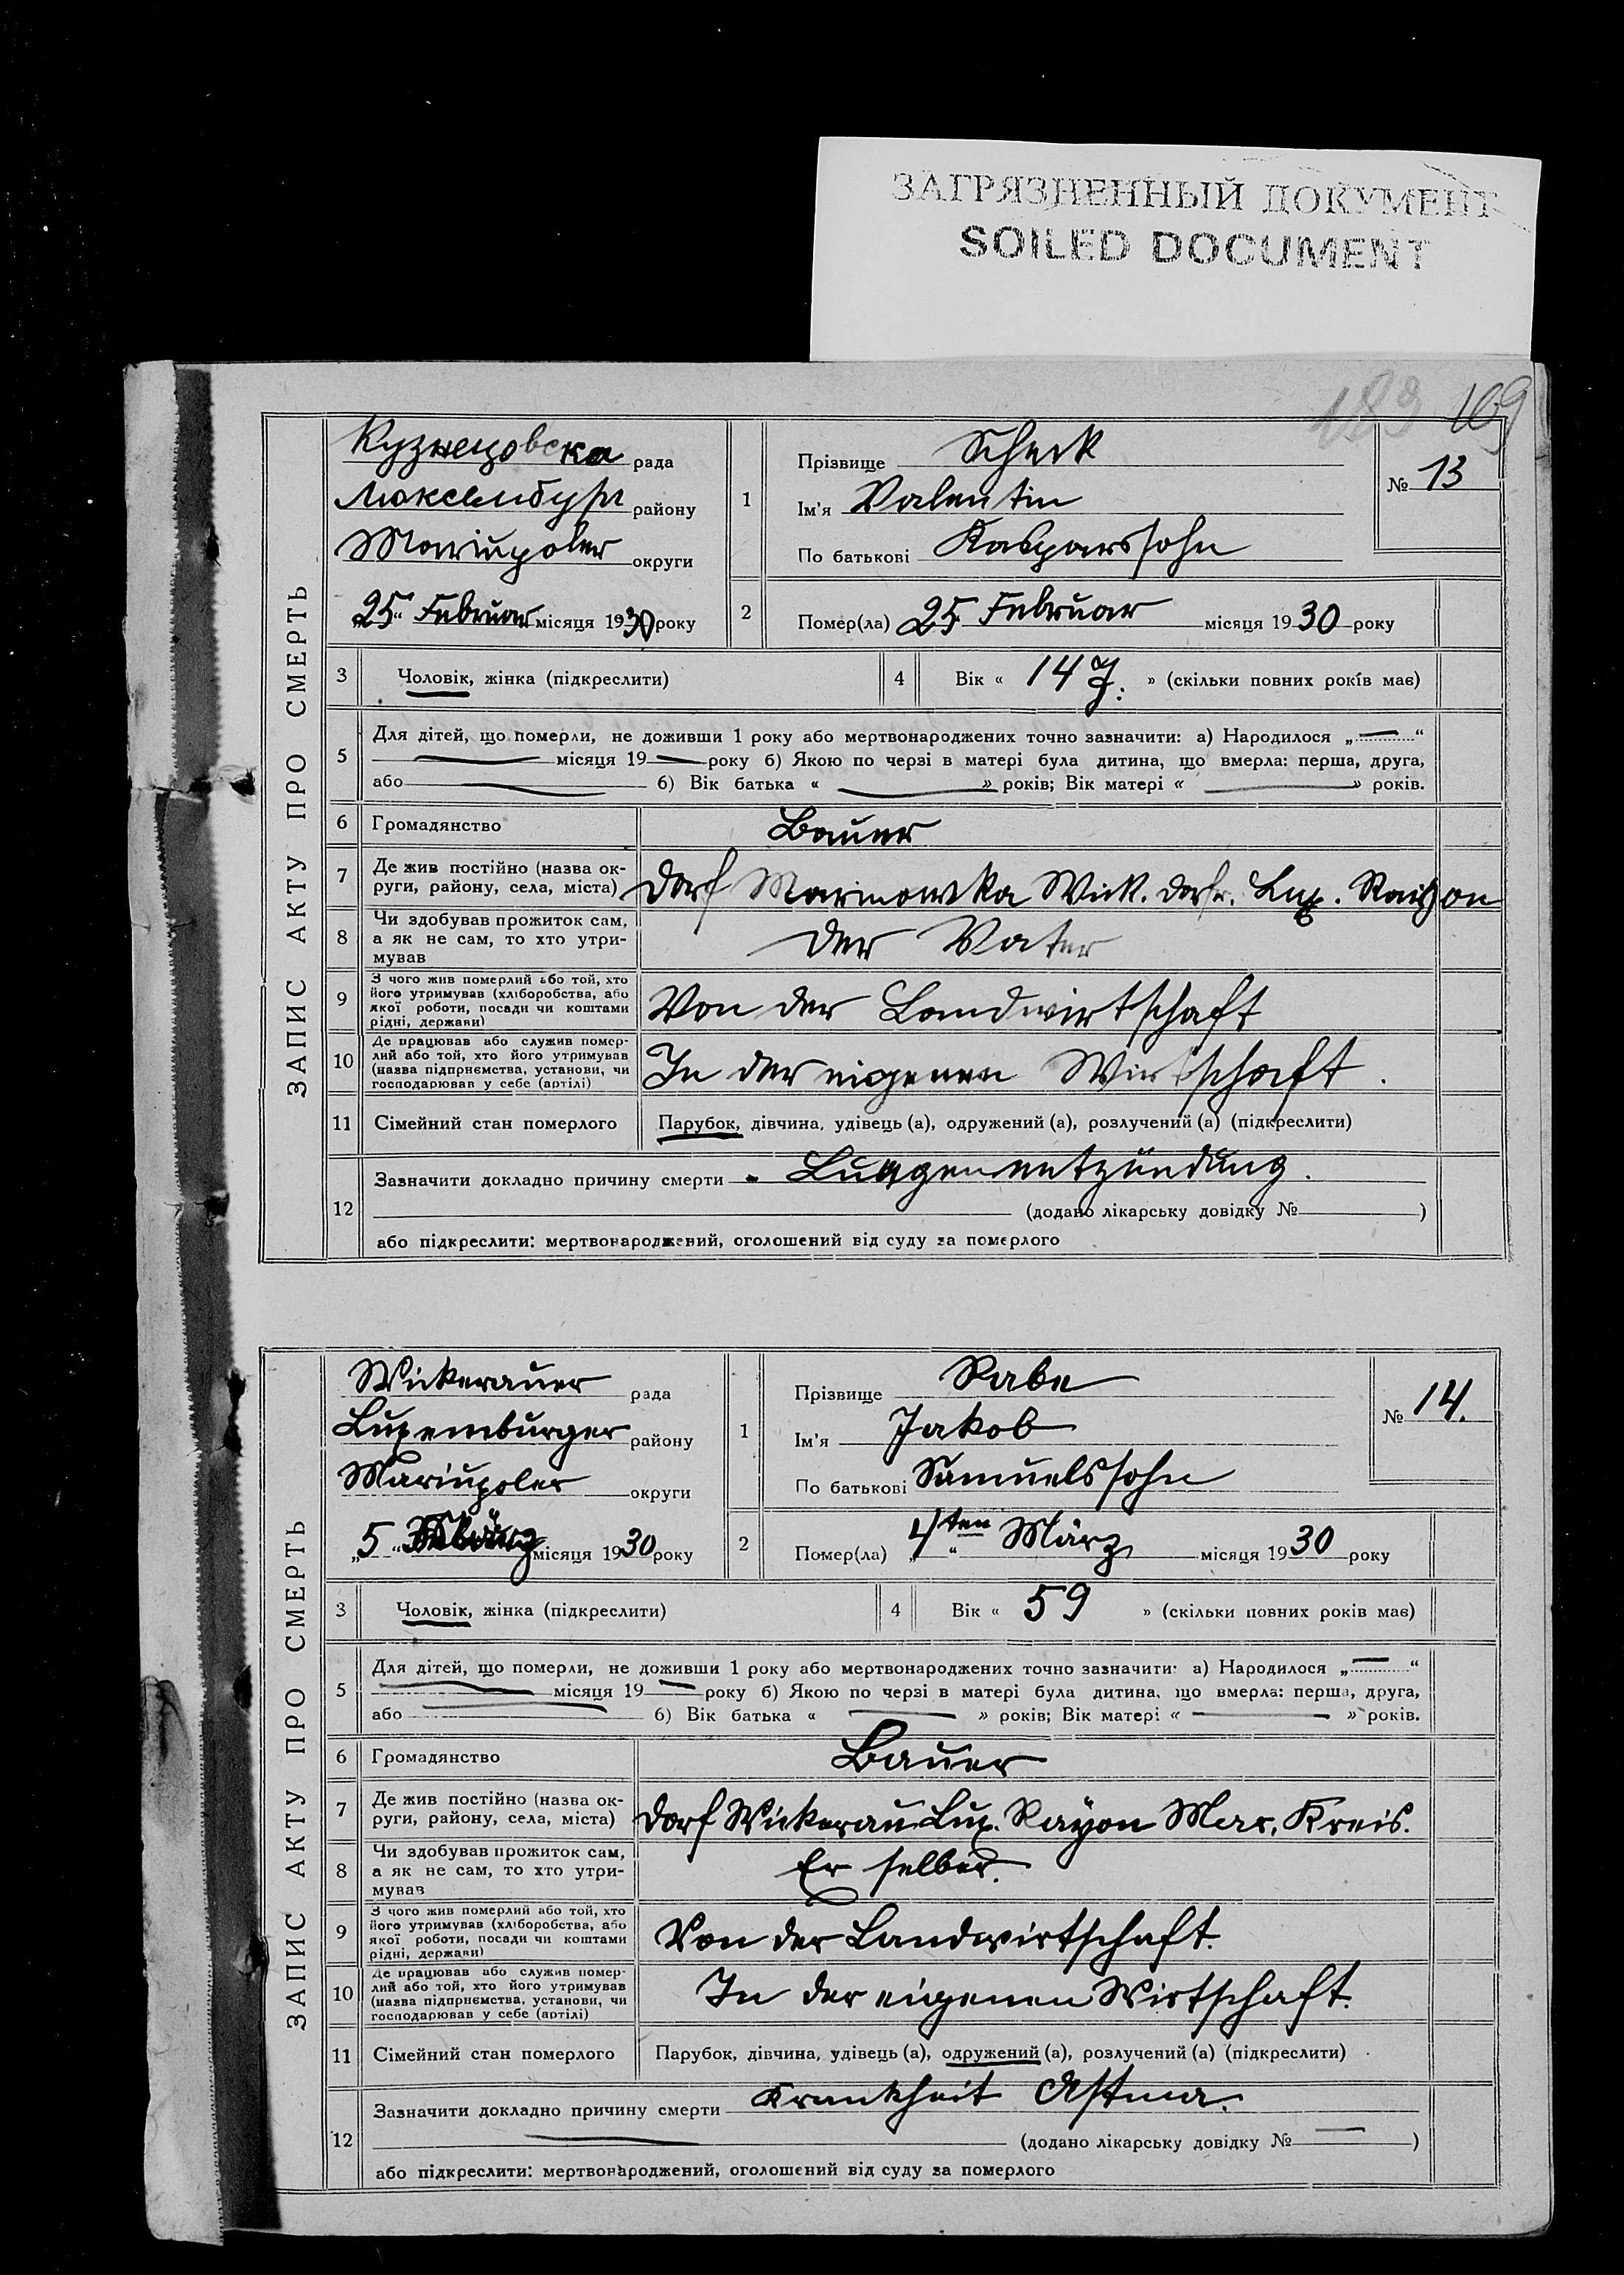 ЗАГРЯЗНЕННЫЙ ДОКУМЕНТ
SOILED DOCUMENT
183 169
ЗАПИС АКТУ ПРО СМЕРТЬ
Кузнецовска рада
Люксембург району
Mariupoler округи
„25“ Februar місяця 1930 року
1
Прізвище Scheck
Ім'я Valentin
По батькові Kasparssohn
№ 13
2
Помер(ла) 25 Februar місяця 1930 року
3 Чоловік, жінка (підкреслити)
4 Вік « 14 J. » (скільки повних років має)
5 Для дітей, що померли, не доживши 1 року або мертвонароджених точно зазначити: а) Народилося „ — “
— місяця 19 — року б) Якою по черзі в матері була дитина, що вмерла: перша, друга,
або — б) Вік батька « — » років; Вік матері « — » років.
6 Громадянство Bauer
7 Де жив постійно (назва ок-
руги, району, села, міста) Dorf Marinowka Wick. Dorfr. Lux. Raiyon
8 Чи здобував прожиток сам,
а як не сам, то хто утри-
мував Der Vater
9 З чого жив померлий або той, хто
його утримував (хліборобства, або
якої роботи, посади чи коштами
рідні, держави) Von der Landwirtschaft
10 Де працював або служив помер-
лий або той, хто його утримував
(назва підприємства, установи, чи
господарював у себе (артілі) In der eigenen Wirtschaft.
11 Сімейний стан померлого Парубок, дівчина, удівець (а), одружений (а), розлучений (а) (підкреслити)
12 Зазначити докладно причину смерти - Lungenentzündung.
(додано лікарську довідку № )
або підкреслити: мертвонароджений, оголошений від суду за померлого
ЗАПИС АКТУ ПРО СМЕРТЬ
Wickerauer рада
Luxemburger району
Mariupoler округи
„5“ März місяця 1930 року
1
Прізвище Rabe
Ім'я Jakob
По батькові Samuelssohn
№ 14.
2
Помер(ла) „4ten“ März місяця 1930 року
3 Чоловік, жінка (підкреслити)
4 Вік « 59 » (скільки повних років має)
5 Для дітей, що померли, не доживши 1 року або мертвонароджених точно зазначити: а) Народилося „ — “
— місяця 19 — року б) Якою по черзі в матері була дитина, що вмерла: перша, друга,
або — б) Вік батька « — » років; Вік матері « — » років.
6 Громадянство Bauer
7 Де жив постійно (назва ок-
руги, району, села, міста) Dorf Wickerau Lux. Rayon Mar. Kreis.
8 Чи здобував прожиток сам,
а як не сам, то хто утри-
мував Er selber.
9 З чого жив померлий або той, хто
його утримував (хліборобства, або
якої роботи, посади чи коштами
рідні, держави) Von der Landwirtschaft.
10 Де працював або служив помер-
лий або той, хто його утримував
(назва підприємства, установи, чи
господарював у себе (артілі) In der eigenen Wirtschaft.
11 Сімейний стан померлого Парубок, дівчина, удівець (а), одружений (а), розлучений (а) (підкреслити)
12 Зазначити докладно причину смерти Krankheit Astma.
— (додано лікарську довідку № — )
або підкреслити: мертвонароджений, оголошений від суду за померлого